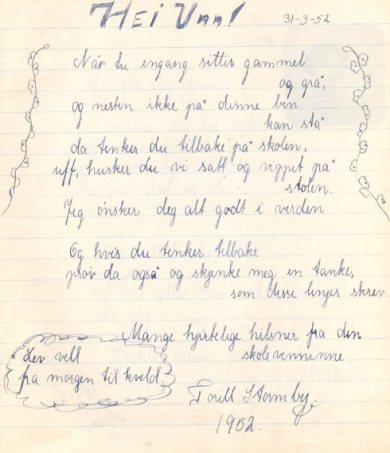 HEI Unn!
31-3-52
Når du engang sitter gammel
og grå,
og nesten ikke på dinne ben
kan stå
da tenker du tilbake på skolen,
uff, husker du vi satt og vippet på
stolen.
Jeg ønsker deg alt godt i verden
Og hvis du tenker tilbake
prøv da også og skjenke meg en tanke,
som disse linjer skrev.
Mange hjertelige hilsner fra din
skolevenninne
Lev vell
fra morgen til kveld.
Torill Stormby.
1952.